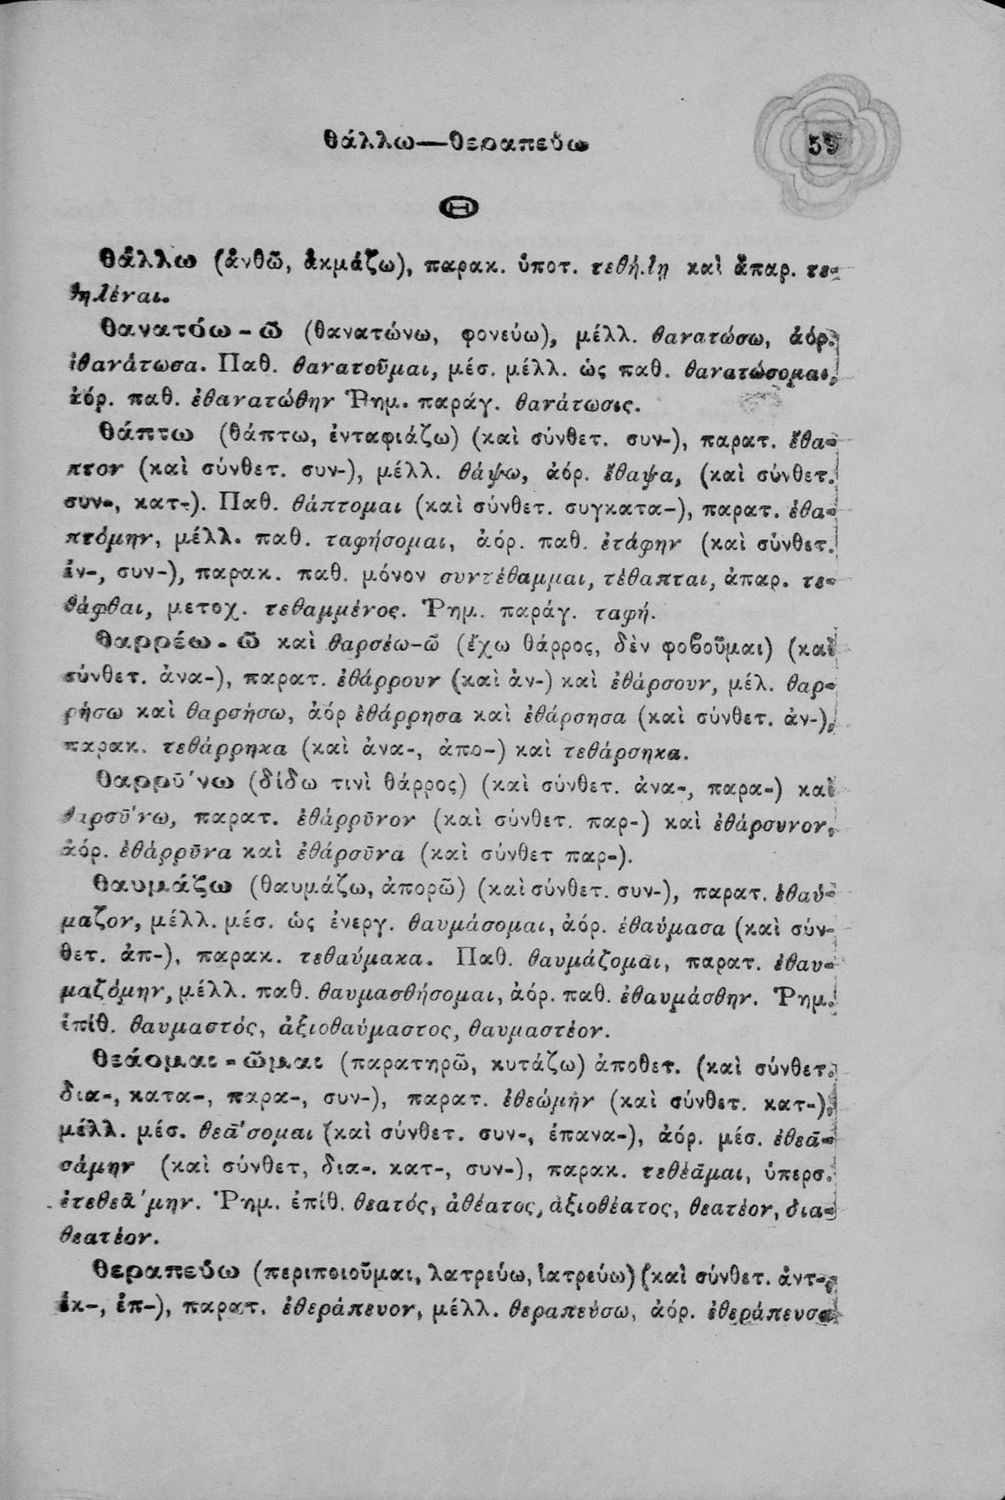 θάλλω—θεραπεύω
59
Θ
θάλλω (ἀνθῶ, ἀκμάζω), παρακ. ὑποτ. τεθήλῃ καὶ ἀπαρ. τε-
θηλέναι.
θανατόω-ῶ (θανατώνω, φονεύω), μέλλ. θανατώσω, ἀόρ.
ἐθανάτωσα. Παθ. θανατοῦμαι, μέσ. μέλλ. ὡς παθ. θανατώσομαι,
ἀόρ. παθ. ἐθανατώθην Ῥημ. παράγ. θανάτωσις.
θάπτω (θάπτω, ἐνταφιάζω) (καὶ σύνθετ. συν-), παρατ. ἔθα-
πτον (καὶ σύνθετ. συν-), μέλλ. θάψω, ἀόρ. ἔθαψα, (καὶ σύνθετ.
συν-, κατ-). Παθ. θάπτομαι (καὶ σύνθετ. συγκατα-), παρατ. ἐθα-
πτόμην, μέλλ. παθ. ταφήσομαι, ἀόρ. παθ. ἐτάφην (καὶ σύνθετ.
ἐν-, συν-), παρακ. παθ. μόνον συντέθαμμαι, τέθαπται, ἀπαρ. τε-
θάφθαι, μετοχ. τεθαμμένος. Ῥημ. παράγ. ταφή.
θαρρέω-ῶ καὶ θαρσέω-ῶ (ἔχω θάρρος, δὲν φοβοῦμαι) (καὶ
σύνθετ. ἀνα-), παρατ. ἐθάρρουν (καὶ ἀν-) καὶ ἐθάρσουν, μέλ. θαρ-
ρήσω καὶ θαρσήσω, ἀόρ ἐθάρρησα καὶ ἐθάρσησα (καὶ σύνθετ. ἀν-),
παρακ. τεθάρρηκα (καὶ ἀνα-, ἀπο-) καὶ τεθάρσηκα.
θαρρῡ́νω (δίδω τινὶ θάρρος) (καὶ σύνθετ. ἀνα-, παρα-) καὶ
θαρσῡ́νω, παρατ. ἐθάρρῡνον (καὶ σύνθετ. παρ-) καὶ ἐθάρσυνον,
ἀόρ. ἐθάρρῡνα καὶ ἐθάρσῡνα (καὶ σύνθετ παρ-).
θαυμάζω (θαυμάζω, ἀπορῶ) (καὶ σύνθετ. συν-), παρατ. ἐθαύ-
μαζον, μέλλ. μέσ. ὡς ἐνεργ. θαυμάσομαι, ἀόρ. ἐθαύμασα (καὶ σύν-
θετ. ἀπ-), παρακ. τεθαύμακα. Παθ. θαυμάζομαι, παρατ. ἐθαυ-
μαζόμην, μέλλ. παθ. θαυμασθήσομαι, ἀόρ. παθ. ἐθαυμάσθην. Ῥημ.
ἐπίθ. θαυμαστός, ἀξιοθαύμαστος, θαυμαστέον.
θεάομαι-ῶμαι (παρατηρῶ, κυτάζω) ἀποθετ. (καὶ σύνθετ.
δια-, κατα-, παρα-, συν-), παρατ. ἐθεώμην (καὶ σύνθετ. κατ-),
μέλλ. μέσ. θεᾱ́σομαι (καὶ σύνθετ. συν-, ἐπανα-), ἀόρ. μέσ. ἐθεᾱ-
σάμην (καὶ σύνθετ, δια-. κατ-, συν-), παρακ. τεθέᾱμαι, ὑπερσ.
ἐτεθεᾱ́μην. Ῥημ. ἐπίθ. θεατός, ἀθέατος, ἀξιοθέατος, θεατέον, δια-
θεατέον.
θεραπεύω (περιποιοῦμαι, λατρεύω, ἰατρεύω) (καὶ σύνθετ. ἀντ-,
ἐκ-, ἐπ-), παρατ. ἐθεράπευον, μέλλ. θεραπεύσω, ἀόρ. ἐθεράπευσα